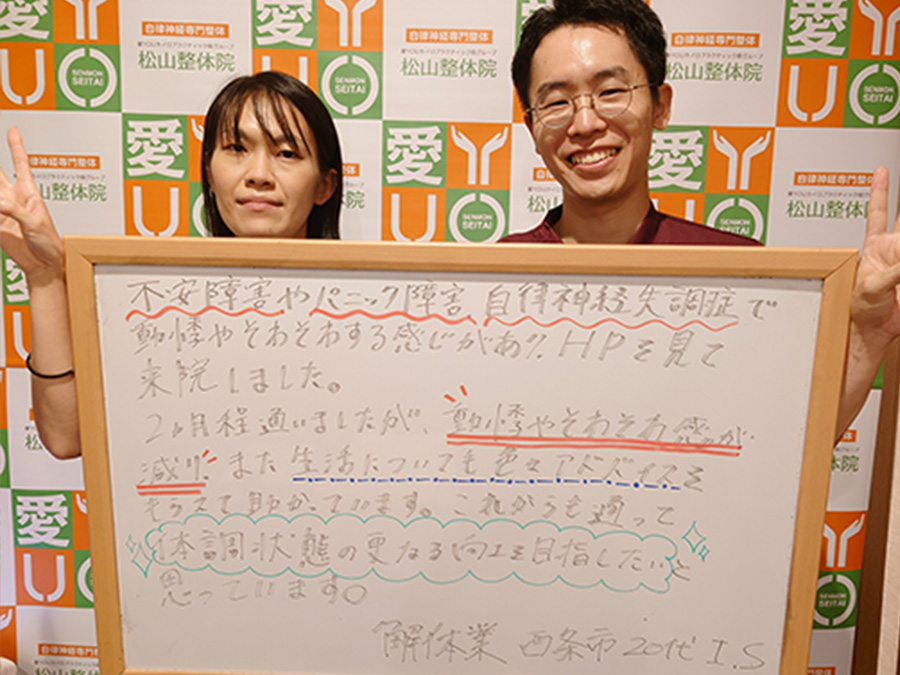 自律神経専門整体
愛YOUカイロプラクティック院グループ
松山整体院
愛
YOU
SENMON
SEITAI
不安障害やパニック障害、自律神経失調症で
動悸やそわそわする感じがあり、HPを見て
来院しました。
2ヶ月程通いましたが、動悸やそわそわ感が
減り、また生活についても色々アドバイスを
もらえて助かっています。これからも通って
体調状態の更なる向上を目指したいと
思っています。
解体業 西条市 20代 I.S